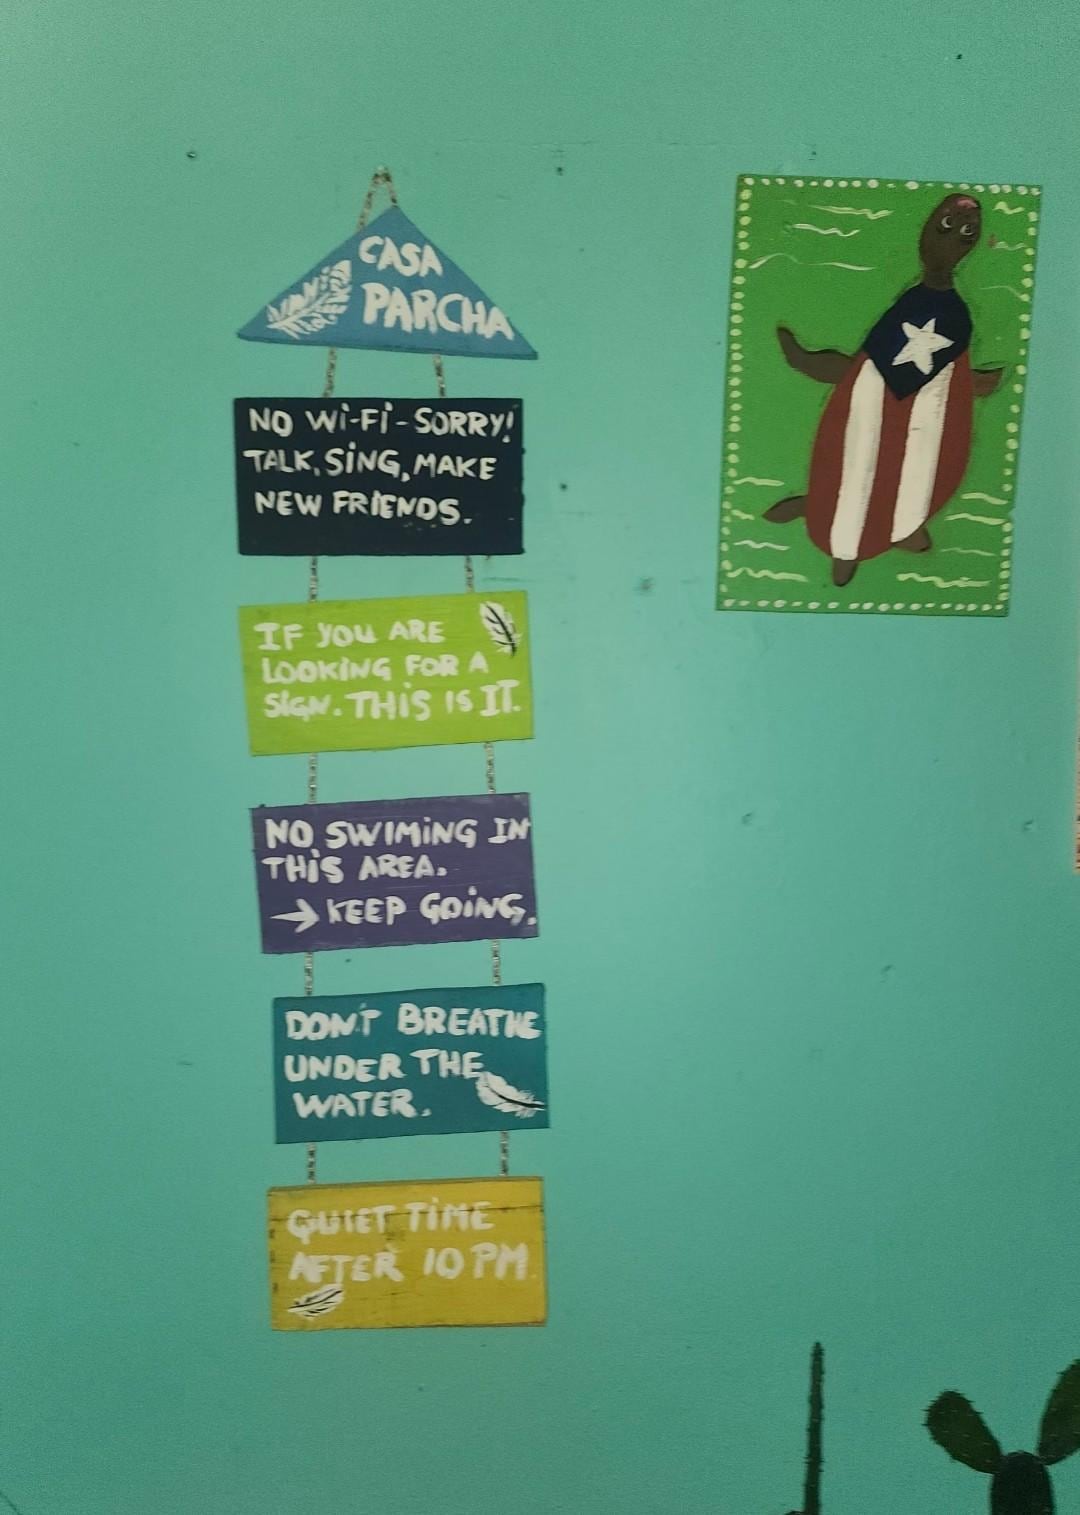 CASA
PARCHA
NO Wi-Fi-SORRY!
TALK, SiNG, MAKE
NEW FRIENDS.
IF YOU ARE
LOOKING FOR A
SIGN. THIS IS IT.
NO SWIMiNG IN
THiS AREA.
→ KEEP GOiNG.
DON'T BREATHE
UNDER THE
WATER.
QUIET TiME
AFTER 10 PM.